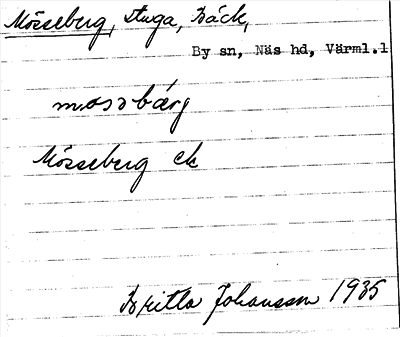 Mösseberg, stuga, Bäck,
By sn, Näs hd, Värml.l
Mösseberg ek
Britta Johansson 1935